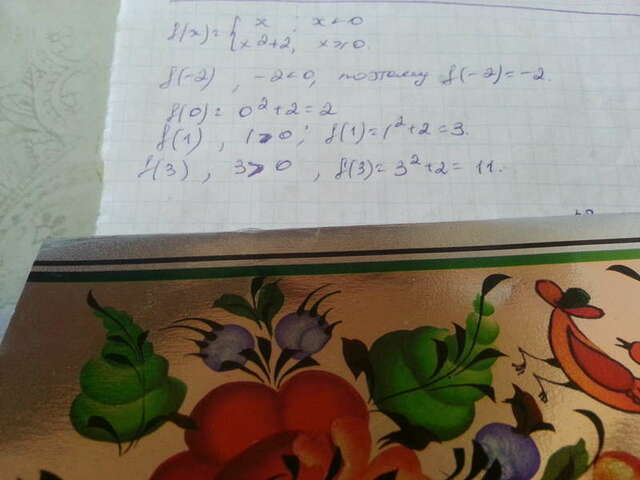 f(x)= { x ; x<0
x2+2, x≥0.
f(-2) , -2<0, поэтому f(-2)=-2.
f(0)= 0²+2=2
f(1) , 1>0; f(1)=1²+2=3.
f(3) , 3>0 , f(3)=3²+2= 11.